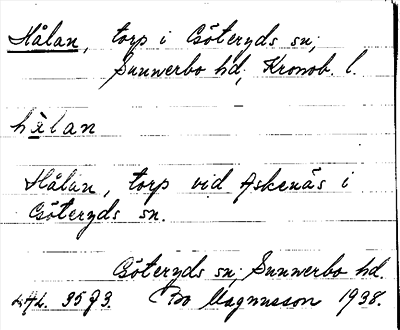 Hålan, torp i Göteryds sn,
Sunnerbo hd, Kronob. l.
hålan
Hålan, torp vid Askenäs i
Göteryds sn.
Göteryds sn, Sunnerbo hd.
LAL. 3593. Bo Magnusson 1938.